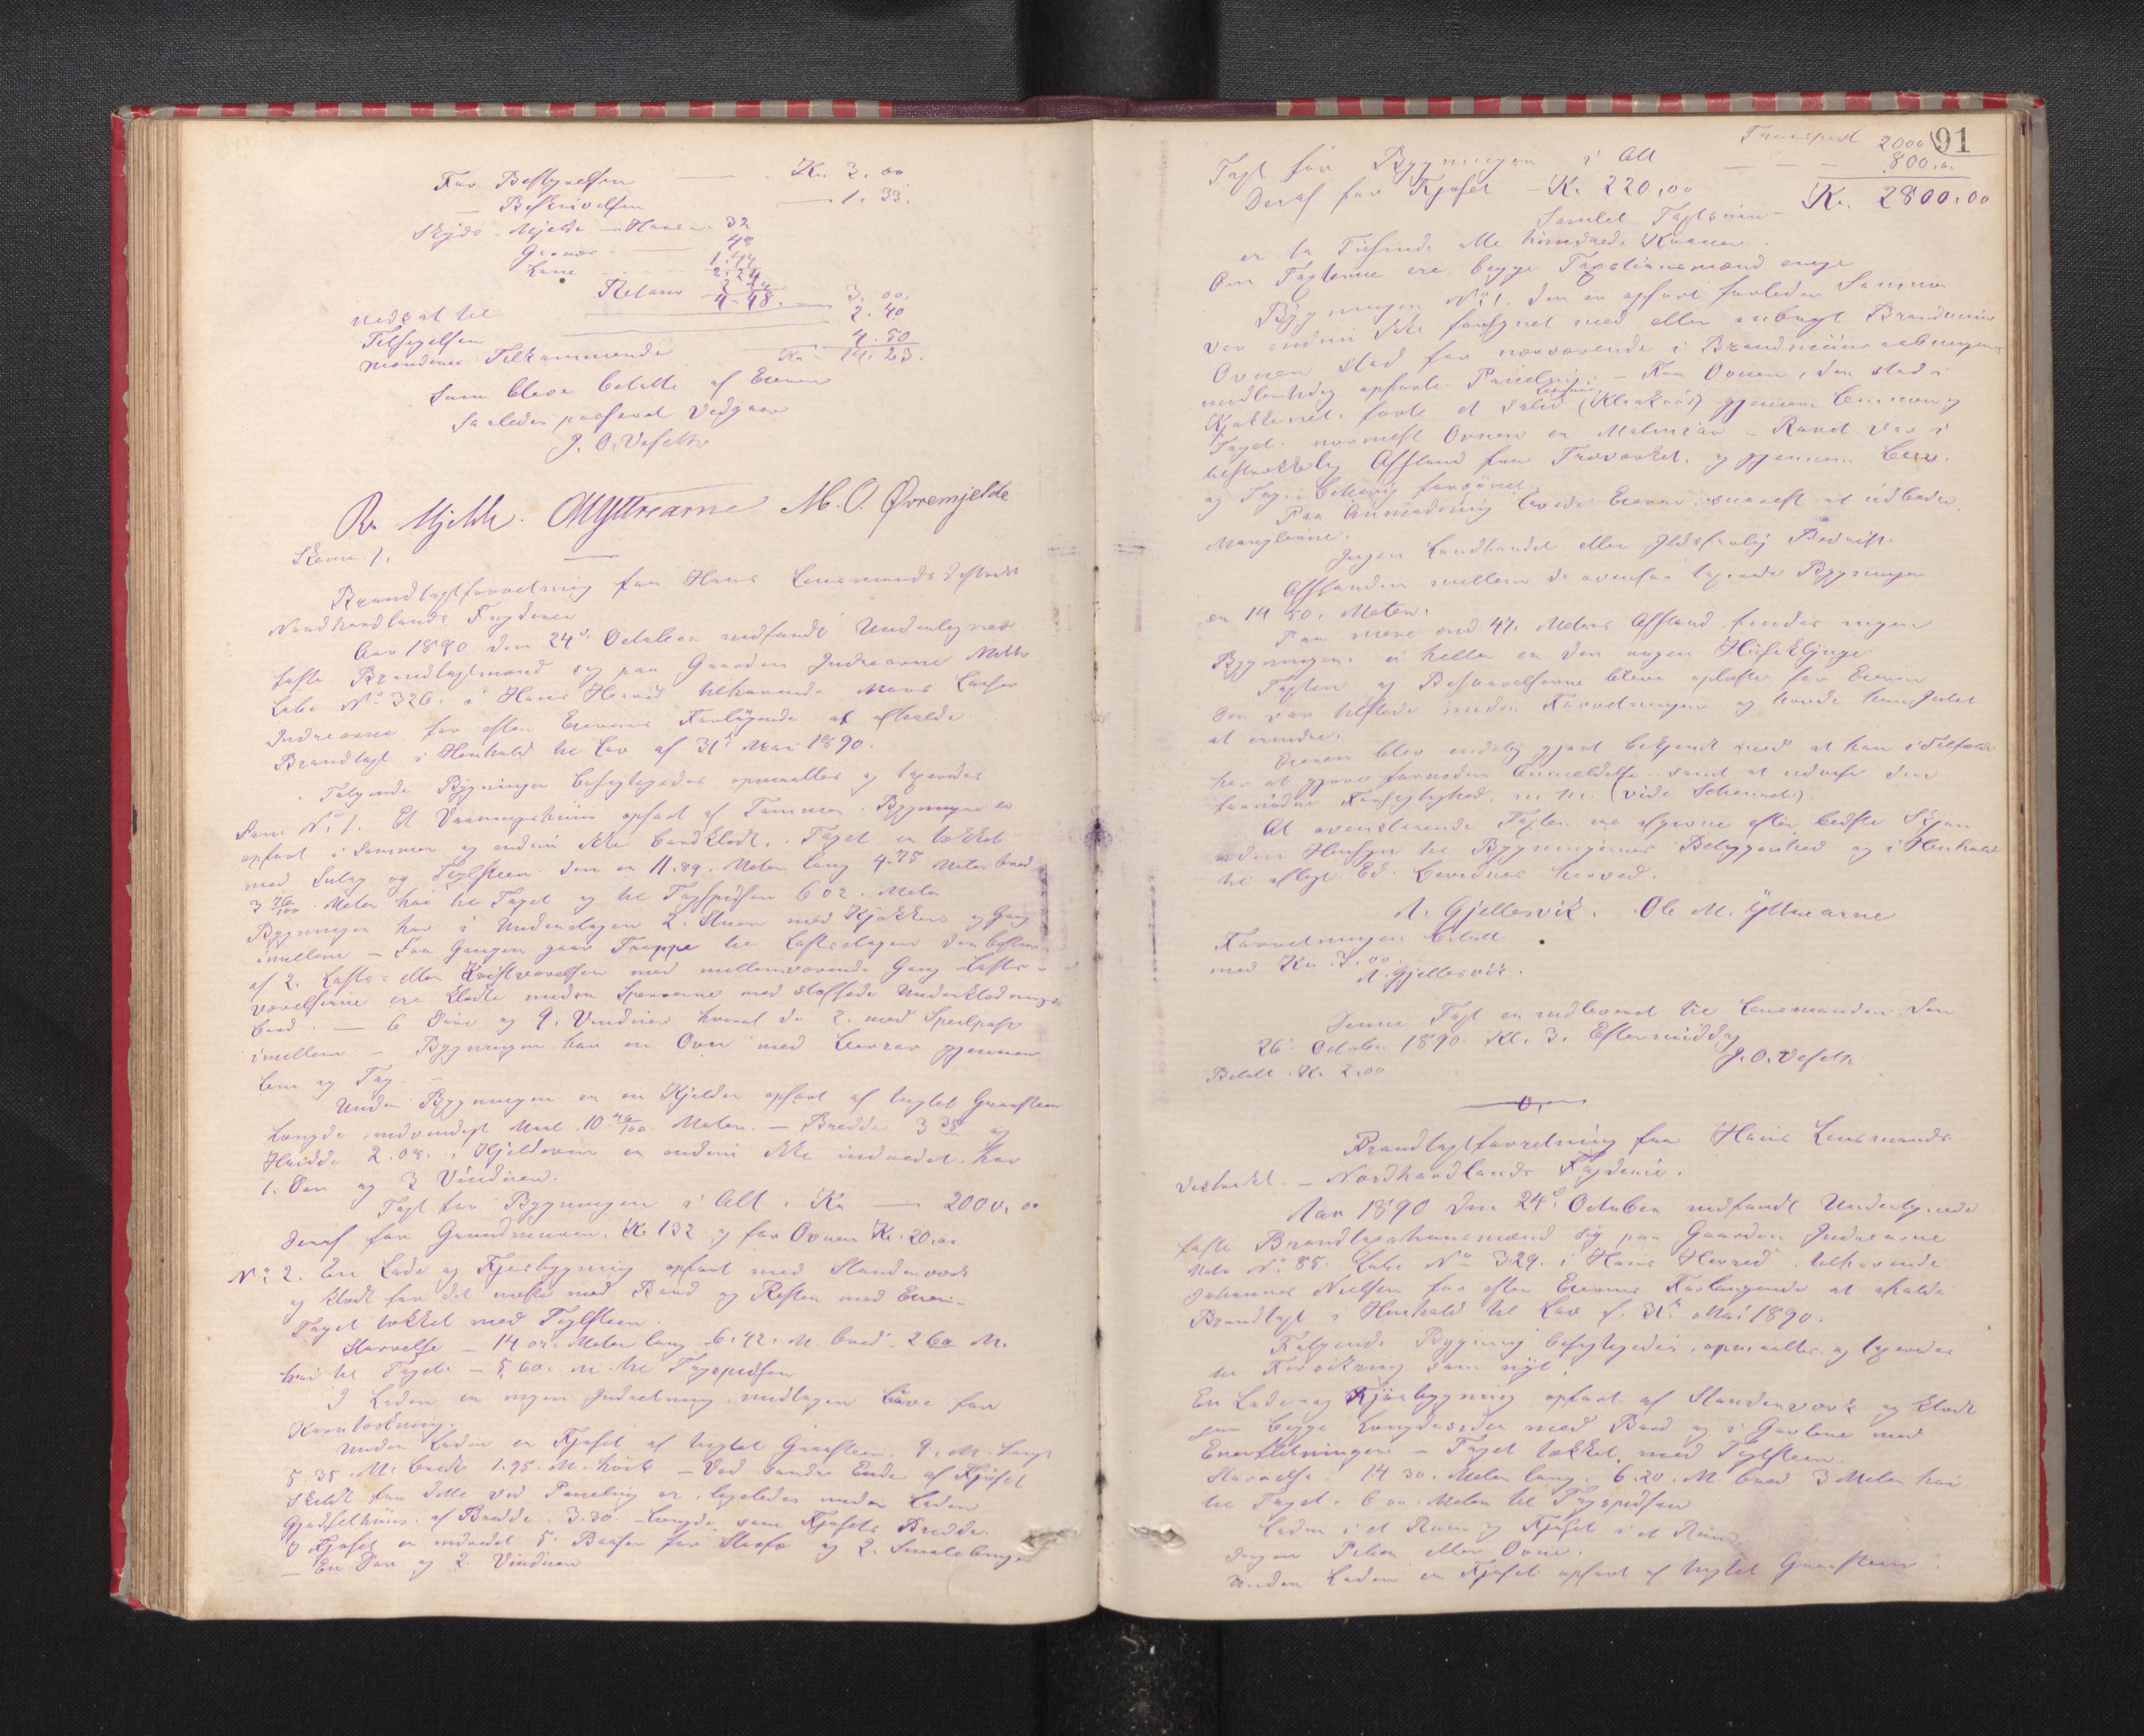 For Bestyrelsen — Kr. 3.00
— Beskrivelsen — 1.33.
Skyds - Mjelde - Haus - 32
48
Lane 1.44
2.24
Retour 2 24
nedsat til 4.48. — 3.00.
Tilsigelsen 2.40
Mændenes Tilkommende 4.50
Kr 14.23.
som bleve betalte af Eieren
Saaledes passeret Vedgaar
J. O. Veseth
R. Mjelde. O M Yttrearne M. O. Øvremjelde
Skema 1.
Brandtaxtforretning fra Haus Lensmandsdistrikt
Nordhordlands Fogderi
Aar 1890 den 24de October indfandt Undertegnede
faste Brandtaxtmænd sig paa Gaarden Indrearne Matr
Løbe No 326. i Haus Herred tilhørende Mons Larsen
Indrearne for efter Eierens Forlangende at afholde
Brandtaxt i Henhold til Lov af 31te Mai 1890.
Følgende Bygninger besigtigedes opmaaltes og taxeredes
som No 1. Et Vaaningshuus opført af Tømmer. Bygningen er
opført i Sommer og endnu ikke bordklædt. Taget er tækket
med Sutag og Teglsteen. Den er 11.89. Meter lang 4.75 Meter bred
3 76/100 Meter høi til Taget og til Tagspidsen 602. Meter
Bygningen har i Underetagen 2. Stuer med Kjøkken og Gang
imellem — Fra Gangen gaar Trappe til Loftsetagen der bestaar
af 2. Lofts- eller Kvistværelser med mellemværende Gang — Lofts-
værelserne ere klædte under Sperrerne med staffede Underklædnings
bord. — 6 Døre og 9. Vinduer hvoraf de 2. med Speilpost
imellem — Bygningen har en Ovn med Leerrør gjennem
Lem og Tag. —
Under Bygningen er en Kjelder opført af hugtet Graasteen
Længde indvendigt Maal 10 46/100 Meter. — Bredde 3 35 og
Høide 2.08. i Kjelderen er endnu ikke indredet. har
1. Dør og 3 Vinduer.
Taxt for Bygningen i Alt. Kr — 2000.00
Deraf for Grundmuren. Kr 132 og for Ovnen Kr. 20.00
No 2. En Lade og Fjøsbygning opført med Standerværk
og klædt for det meste med Bord og Resten med Ener-
Taget tækket med Teglsteen.
Størrelse — 14 02. Meter lang 6.42. M. bred 2 60 M.
høi til Taget. — 5.60. M til Tagspidsen
I Laden er ingen Indretning undtagen Løve for
Korntørkning.
Under Laden er Fjøset af hugtet Graasteen. 9. M. lang
5.35. M. bredt 1.95. M. høit — Ved søndre Ende af Fjøset
skildt fra dette ved Paneling er ligeledes under Laden
Gjødselhuus af Bredde 3.30 — Længde som Fjøsets Bredde.
I Fjøset er indredet 5. Baaser for Storfæ og 2. Smalebinger
— En Dør og 2. Vinduer
91
Transport 2000
Taxt for Bygningen i Alt — — — 800.00
Deraf for Fjøset — Kr 220.00 Kr. 2800.00
Samlet Taxtsum —
er to Tusinde otte hundrede Kroner.
Om Taxterne ere begge Taxationsmænd enige
Bygningen No 1. den er opført forleden Sommer
var endnu ikke forsynet med eller indbragt Brandmuur
Ovnen stod for nærværende i Brandmuursaabningen
midlertidig opførte Paneling. — Fra Ovnen, den stod i
Kjøkkenet. førte et solid Leerrør (Klinkrør) gjennem Lemmen og
Taget. nærmest Ovnen en Malmrør — Røret var i
tilstrækkelig Afstand fra Træværket, og gjennem Lem.
og Tag. behørig forsynet.
Paa Anmodning lovede Eieren snarest at udbedre
Manglerne.
Ingen Landhandel eller Ildsfarlig Bedrift.
Afstanden mellem de ovenfor taxerede Bygninger
er 14 50. Meter.
Paa mere end 47. Meters Afstand findes ingen
Bygninger. ei heller er der nogen Huseklynge.
Taxten og Besvarelserne bleve oplæste for Eieren
der var tilstede under Forretningen og havde han Intet
at erindre.
Eieren blev endelig gjort bekjendt med at han i Tilfælde
har at gjøre fornøden Anmeldelse samt at udvise den
fornødne Forsigtighed. m. m. (vide Schemaet)
At ovenstaaende Taxter ere afgivne efter bedste Skjøn
uden Hensyn til Bygningernes Beliggenhed og i Henhold
til aflagt Ed. bevidnes herved.
A. Gjellesvik. Ole M. Yttrearne
Forretningen betalt
med Kr. 3.00
A. Gjellesvik.
Denne Taxt er indleveret til Lensmanden den
26. October 1890. Kl. 3. Eftermiddag
Betalt Kr 2.00 J. O. Veseth
Brandtaxtforretning fra Haus Lensmands
distrikt. — Nordhordlands Fogderie.
Aar 1890 den 24de October indfandt Undertegnede
faste Brandtaxationsmænd sig paa Gaarden Indrearne
Matr No 85. Løbe No 329. i Haus Herred tilhørende
Johannes Nielsen for efter Eierens Forlangende at afholde
Brandtaxt i Henhold til Lov af 31te Mai 1890.
Følgende Bygning besigtigedes, opmaaltes og taxeredes
til Forsikring som nyt.
En Lade og Fjøsbygning opført af Standerværk og klædt
paa begge Længdesider med Bord og i Gavlene med
Enerklædninger — Taget tækket med Teglsteen.
Størrelse. 14 30. Meter lang. 6.20. M bred 3 Meter høi
til Taget. 6 00. Meter til Tagspidsen
Laden i et Rum og Fjøset i et Rum.
Ingen Piber eller Ovne.
Under Laden er Fjøset opført af hugtet Graasteen.